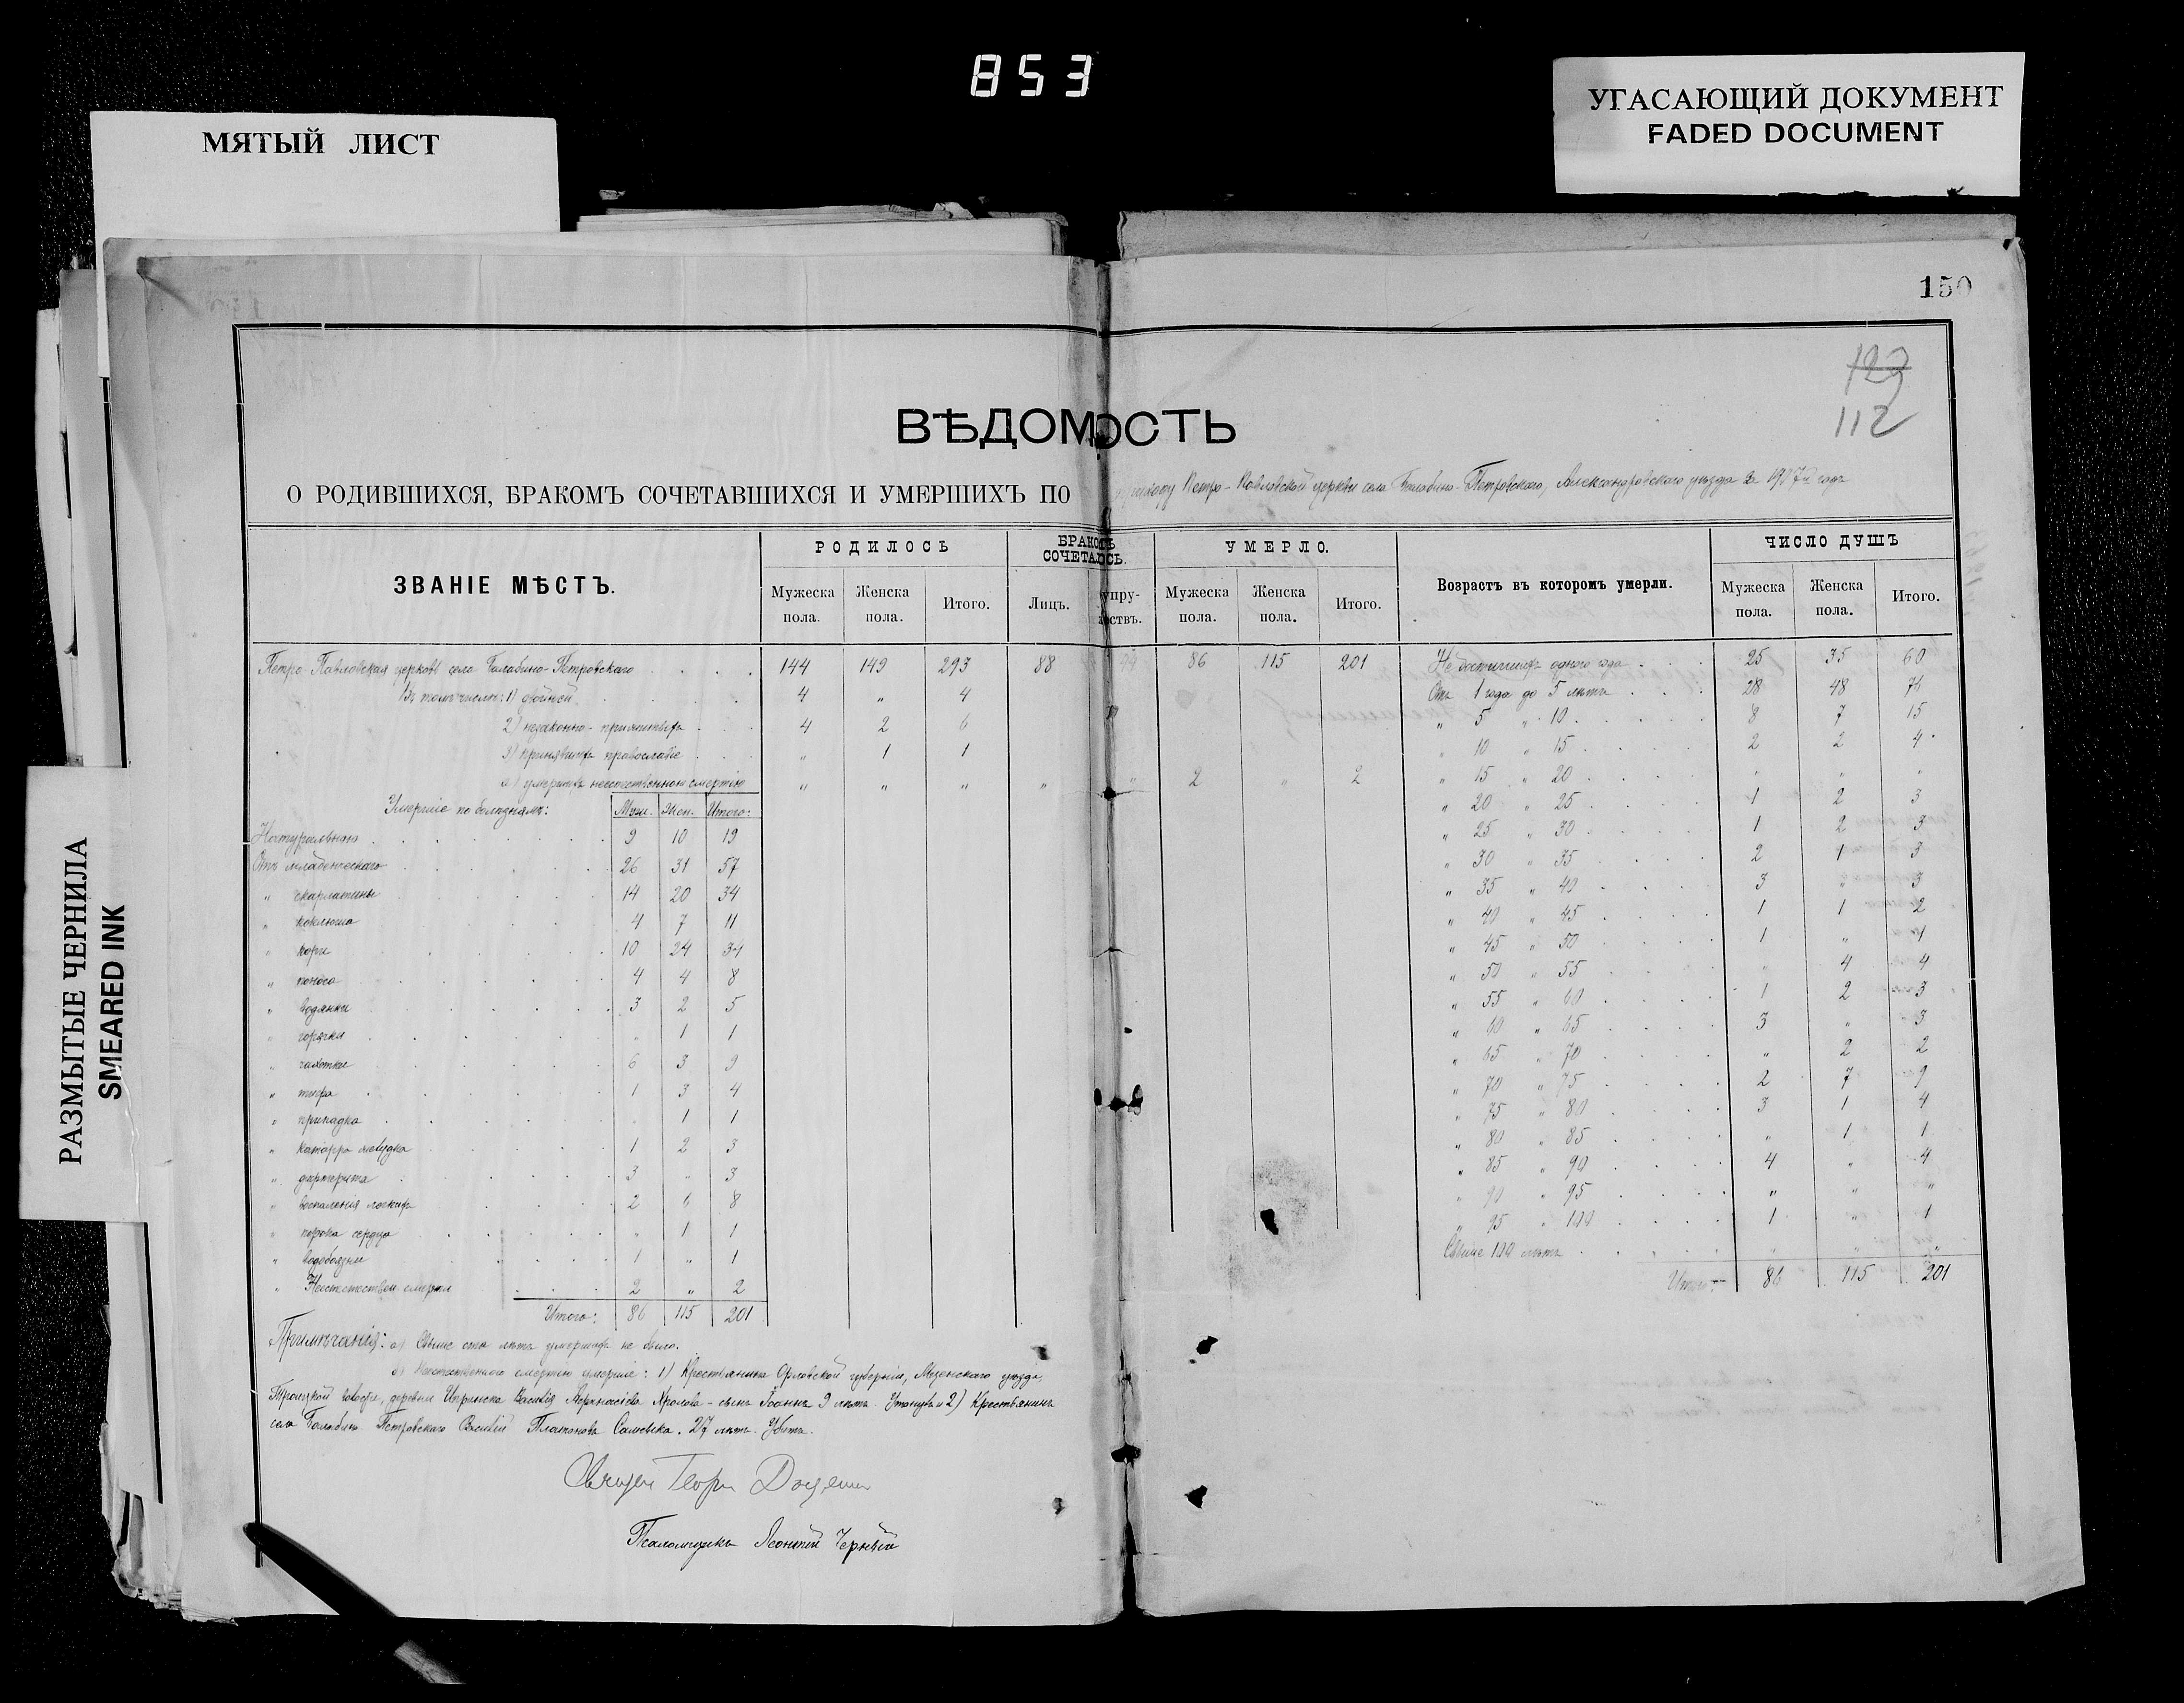 853
МЯТЫЙ ЛИСТ
УГАСАЮЩИЙ ДОКУМЕНТ
FADED DOCUMENT
РАЗМЫТЫЕ ЧЕРНИЛА
SMEARED INK
150
129
112
ВѢДОМОСТЬ
О РОДИВШИХСЯ, БРАКОМЪ СОЧЕТАВШИХСЯ И УМЕРШИХЪ ПО приходу Петро-Павловской церкви села Балабино-Петровскаго, Александровскаго уѣзда за 1907й годъ
ЗВАНІЕ МѢСТЪ. РОДИЛОСЬ БРАКОМЪ СОЧЕТАЛОСЬ. УМЕРЛО. Возрастъ въ которомъ умерли. ЧИСЛО ДУШЪ
Мужеска пола. Женска пола. Итого. Лицъ. Супружествъ. Мужеска пола. Женска пола. Итого. Мужеска пола. Женска пола. Итого.
Петро-Павловская церковь села Балабино-Петровскаго 144 149 293 88 44 86 115 201
Въ томъ числѣ: 1) двойней 4 „ 4
2) незаконно-прижитыхъ 4 2 6
3) принявшихъ православіе „ 1 1
4) умершихъ неестественною смертію „ „ „ „ „ 2 „ 2
Умершіе по болѣзнямъ: Муж. Жен. Итого:
Натуральною 9 10 19
Отъ младенческаго 26 31 57
„ скарлатины 14 20 34
„ коклюша 4 7 11
„ кори 10 24 34
„ поноса 4 4 8
„ водянки 3 2 5
„ горячки „ 1 1
„ чахотки 6 3 9
„ тифа 1 3 4
„ припадка „ 1 1
„ катарра желудка 1 2 3
„ дифтерита 3 „ 3
„ воспаленія легкихъ 2 6 8
„ порока сердца „ 1 1
„ водобоязни 1 „ 1
„ Неестествен смерти 2 „ 2
Итого: 86 115 201
Не достигшихъ одного года 25 35 60
Отъ 1 года до 5 лѣтъ 28 48 76
„ 5 „ 10 8 7 15
„ 10 „ 15 2 2 4
„ 15 „ 20 „ „ „
„ 20 „ 25 1 2 3
„ 25 „ 30 1 2 3
„ 30 „ 35 2 1 3
„ 35 „ 40 3 „ 3
„ 40 „ 45 1 1 2
„ 45 „ 50 1 „ 1
„ 50 „ 55 „ 4 4
„ 55 „ 60 1 2 3
„ 60 „ 65 3 „ 3
„ 65 „ 70 „ 2 2
„ 70 „ 75 2 7 9
„ 75 „ 80 3 1 4
„ 80 „ 85 „ 1 1
„ 85 „ 90 4 „ 4
„ 90 „ 95 „ „ „
„ 95 „ 100 1 „ 1
Свыше 100 лѣтъ „ „ „
Итого: 86 115 201
Примѣчанія: а) Свыше ста лѣтъ умершихъ не было.
б) неестественною смертію умершіе: 1) Крестьянина Орловской губерніи, Мценскаго уѣзда,
Троицкой волости, деревни Василія Аѳанасіева Фролова - сынъ Іоаннъ 9 лѣтъ. Утонулъ и 2) Крестьянинъ
села Балабино Петровскаго Василій Платоновъ 27 лѣтъ. Убитъ.
Священ Георг Доценко
Псаломщикъ Леонтій Черный